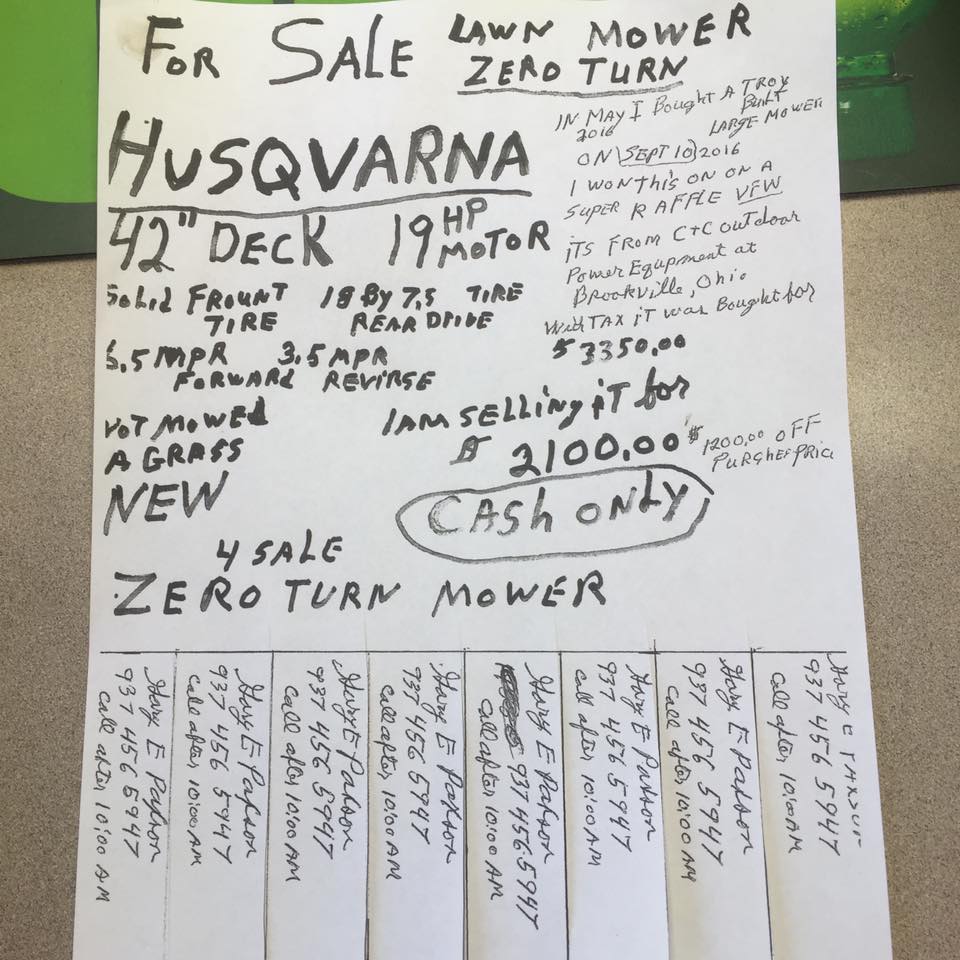 FOR SALE LAWN MOWER
ZERO TURN
HUSQVARNA
42" DECK 19 HP MOTOR
SOLID FROUNT TIRE
18 By 7.5 TIRE
REAR DRIVE
5.5 MPR FORWARD
3.5 MPR REVIRSE
NOT MOWED
A GRASS
NEW
IN MAY I BOUGHT A TROY
2016 BUILT
LARGE MOWER
ON SEPT 10 2016
I WON THIS ON ON A
SUPER RAFFLE VFW
iTS FROM C+C OUTdoor
Power Equpment at
Brookville, Ohio
With TAX iT was Bought for
$3350.00
I AM SELLING iT for
$ 2100.00
$1200.00 OFF
CASH ONLY
4 SALE
ZERO TURN MOWER
937 456 5947
call after 10:00 AM
Gary E Parson
937 456 5947
call after 10:00 AM
Gary E Parson
937 456 5947
call after 10:00 AM
Gary E Parson
937 456 5947
call after 10:00 AM
Gary E Parson
937 456 5947
call after 10:00 AM
Gary E Parson
937 456-5947
call after 10:00 AM
Gary E Parson
937 456 5947
call after 10:00 AM
Gary E Parson
937 456 5947
call after 10:00 AM